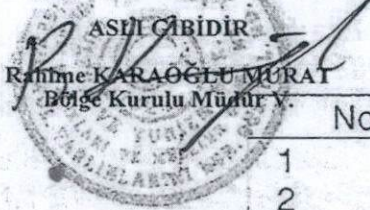 ASLI GİBİDİR
Rahime KARAOĞLU MURAT
Bölge Kurulu Müdür V.
No
1
2